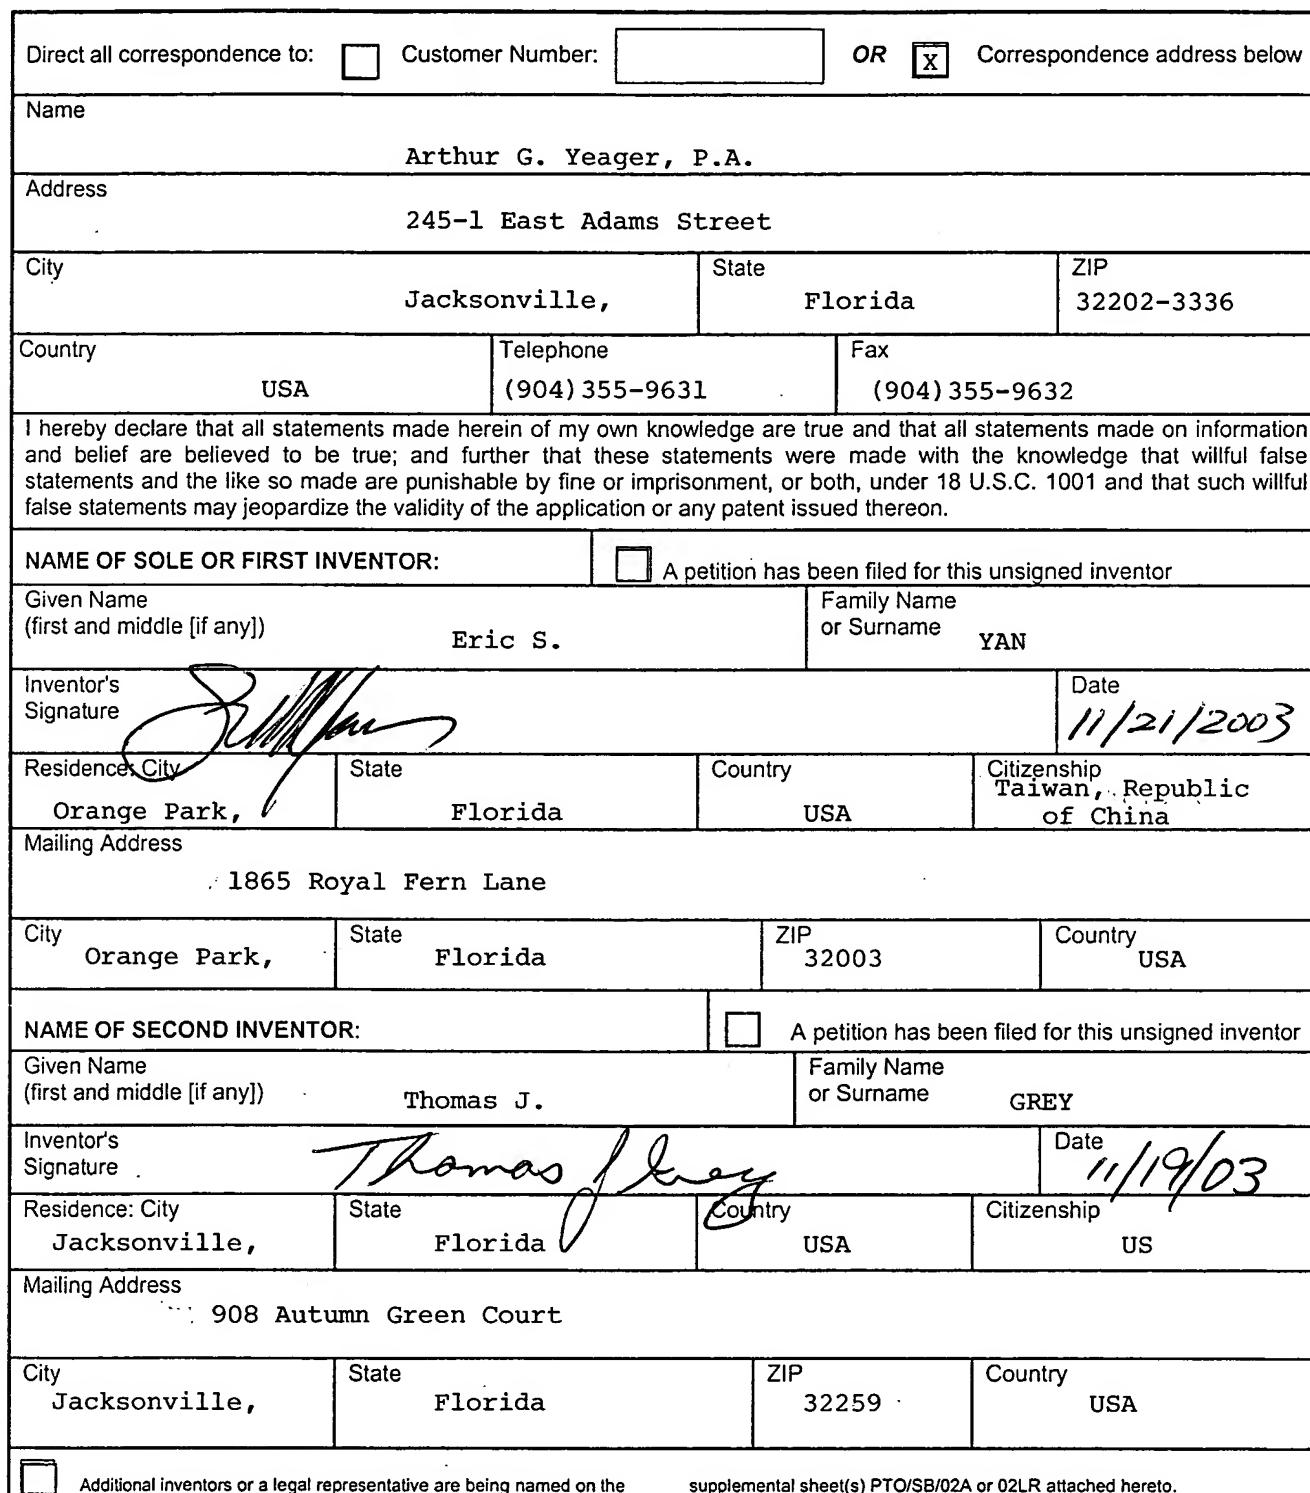 Direct all correspondence to: Customer Number: OR X Correspondence address below
Name
Arthur G. Yeager, P.A.
Address
245-1 East Adams Street
City State ZIP
Jacksonville, Florida 32202-3336
Country Telephone Fax
USA (904)355-9631 (904)355-9632
I hereby declare that all statements made herein of my own knowledge are true and that all statements made on information
and belief are believed to be true; and further that these statements were made with the knowledge that willful false
statements and the like so made are punishable by fine or imprisonment, or both, under 18 U.S.C. 1001 and that such willful
false statements may jeopardize the validity of the application or any patent issued thereon.
NAME OF SOLE OR FIRST INVENTOR: A petition has been filed for this unsigned inventor
Given Name Family Name
(first and middle [if any]) Eric S. or Surname YAN
Inventor's Date
Signature 11/21/2003
Residence: City State Country Citizenship
Taiwan, Republic
Orange Park, Florida USA of China
Mailing Address
1865 Royal Fern Lane
City State ZIP Country
Orange Park, Florida 32003 USA
NAME OF SECOND INVENTOR: A petition has been filed for this unsigned inventor
Given Name Family Name
(first and middle [if any]) Thomas J. or Surname GREY
Inventor's Date
Signature Thomas J Grey 11/19/03
Residence: City State Country Citizenship
Jacksonville, Florida USA US
Mailing Address
908 Autumn Green Court
City State ZIP Country
Jacksonville, Florida 32259 USA
Additional inventors or a legal representative are being named on the supplemental sheet(s) PTO/SB/02A or 02LR attached hereto.